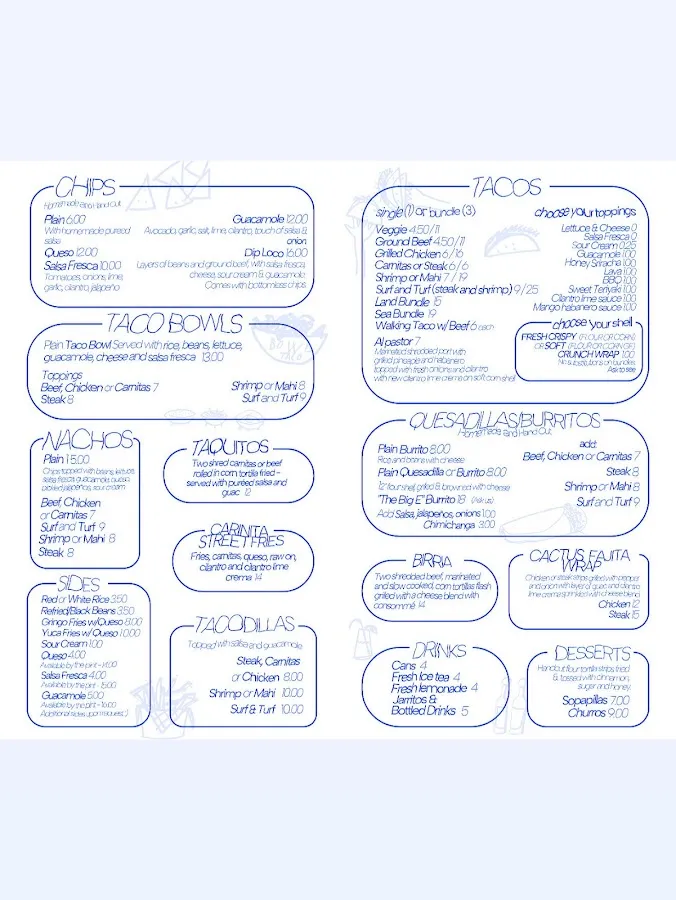 CHIPS
Plain 6.00
With homemade pureed
salsa
Queso 12.00
Salsa Fresca 10.00
Tomatoes, onions, lime,
garlic, cilantro, jalapeño
Guacamole 12.00
Avocado, garlic, salt, lime, cilantro, touch of salsa &
onion
Dip Loco 16.00
Layers of beans and ground beef, with salsa fresca,
cheese, sour cream & guacamole
Comes with bottomless chips
TACO BOWLS
Plain Taco Bowl Served with rice, beans, lettuce,
guacamole, cheese and salsa fresca 13.00
Toppings
Beef, Chicken or Carnitas 7
Steak 8
Shrimp or Mahi 8
Surf and Turf 9
NACHOS
Plain 15.00
Chips topped with beans, lettuce,
salsa fresca, guacamole, queso,
pickled jalapeños, sour cream
Beef, Chicken
or Carnitas 7
Surf and Turf 9
Shrimp or Mahi 8
Steak 8
TAQUITOS
Two shred carnitas or beef
rolled in corn tortilla fried -
served with puréed salsa and
guac 12
CARINITA
STREET FRIES
Fries, carnitas, queso, raw onion,
cilantro and cilantro lime
crema 14
SIDES
Red or White Rice 3.50
Refried/Black Beans 3.50
Gringo Fries w/Queso 8.00
Yuca Fries w/ Queso 10.00
Sour Cream 1.00
Queso 4.00
Available by the pint - 14.00
Salsa Fresca 4.00
Available by the pint - 15.00
Guacamole 5.00
Available by the pint - 16.00
Additional sides upon request :)
TACODILLAS
Topped with salsa and guacamole
Steak, Carnitas
or Chicken 8.00
Shrimp or Mahi 10.00
Surf & Turf 10.00
TACOS
single (1) or bundle (3)
Veggie 4.50/11
Ground Beef 4.50/11
Grilled Chicken 6/16
Carnitas or Steak 6/6
Shrimp or Mahi 7 / 19
Surf and Turf (steak and shrimp) 9/25
Land Bundle 15
Sea Bundle 19
Walking Taco w/ Beef 6 each
Al pastor 7
Marinated shredded pork with
grilled pineapple and habanero
topped with fresh onions and cilantro
with new cilantro lime crema on soft corn shell
choose your toppings
Lettuce & Cheese 0
Salsa Fresca 0
Sour Cream 0.25
Guacamole 1.00
Honey Sriracha 1.00
Lava 1.00
BBQ 1.00
Sweet Teriyaki 1.00
Cilantro lime sauce 1.00
Mango habanero sauce 1.00
choose your shell
FRESH CRISPY (FLOUR OR CORN)
OR SOFT (FLOUR OR CORN GF)
CRUNCH WRAP 1.00
No substitutions on bundles
Ask to see
QUESADILLAS/BURRITOS
Homemade and Hand Cut
Plain Burrito 8.00
Rice and beans with cheese
Plain Quesadilla or Burrito 8.00
12" flour shell, grilled & browned with cheese
"The Big E" Burrito 18 (Ask us)
Add Salsa, jalapeños, onions 1.00
Chimichanga 3.00
add:
Beef, Chicken or Carnitas 7
Steak 8
Shrimp or Mahi 8
Surf and Turf 9
BIRRIA
Two shredded beef, marinated
and slow cooked, corn tortillas flash
grilled with a cheese blend with
consommé 14
CACTUS FAJITA
WRAP
Chicken or steak strips grilled with pepper
and onion with layer of guac and cilantro
lime crema sprinkled with cheese blend
Chicken 12
Steak 15
DRINKS
Cans 4
Fresh ice tea 4
Fresh lemonade 4
Jarritos &
Bottled Drinks 5
DESSERTS
Handcut flour tortilla strips fried
& tossed with cinnamon,
sugar and honey.
Sopapillas 7.00
Churros 9.00